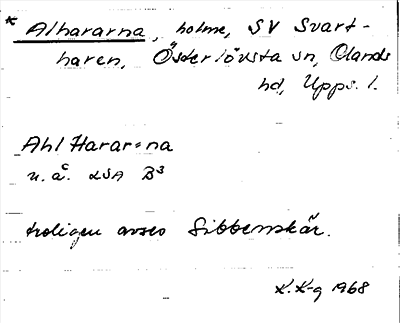 * Alhararna, holme, SV Svart-
haren, Österlövsta sn, Olands
hd, Upps. l.
Ahl Hararna
u. å. LSA B3
troligen avses Sibbenskär.
K. K-g 1968